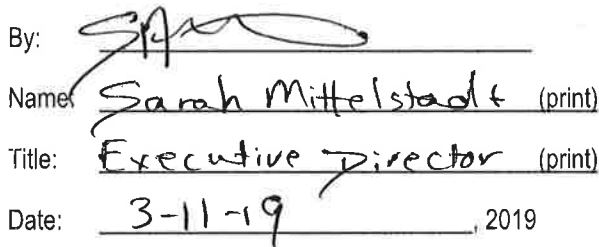 By:
Name: Sarah Mittelstadt (print)
Title: Executive Director (print)
Date: 3-11-19, 2019